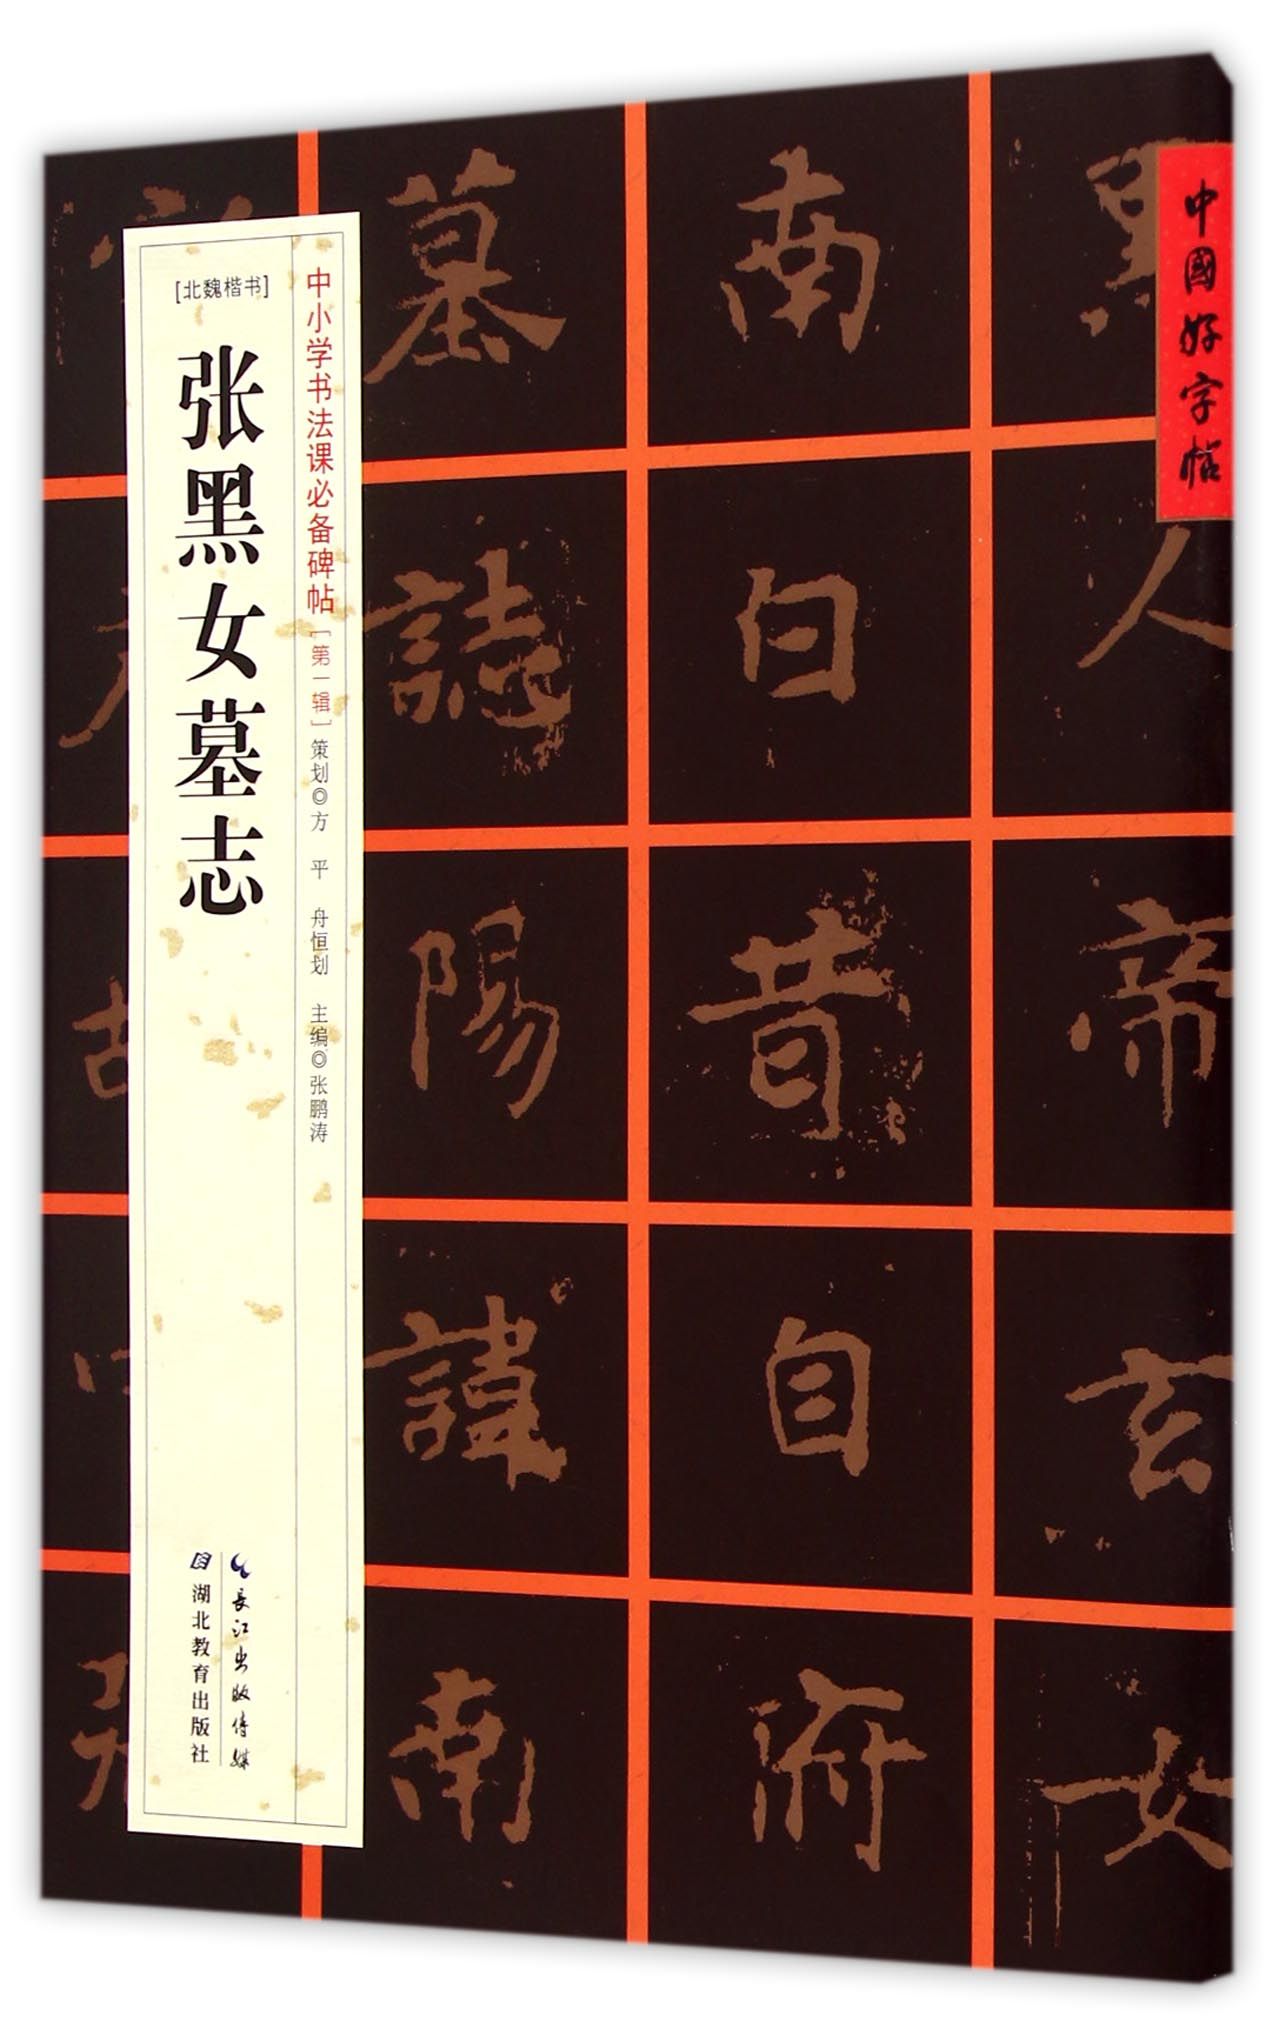 中國好字帖
黑
人
帝
玄
女
南
白
昔
自
府
墓
誌
陽
諱
南
中小学书法课必备碑帖[第一辑]策划◎方 平 舟恒划 主编◎张鹏涛
[北魏楷书]
张黑女墓志
長江出版传媒
湖北教育出版社